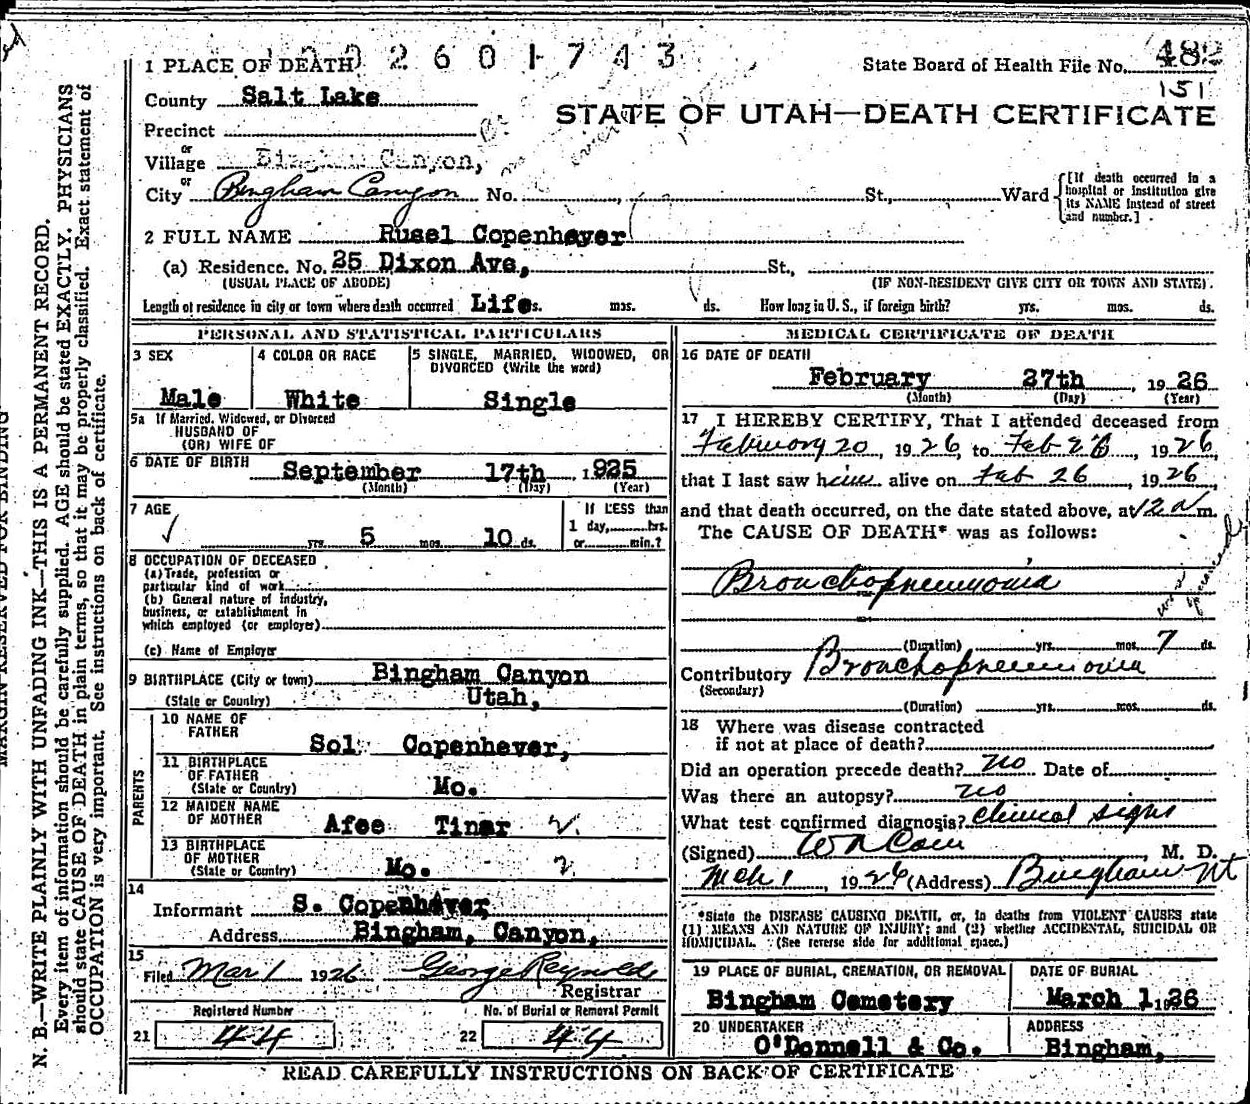 1 PLACE OF DEATH
1 0 0 2 6 0 1 7 4 3
State Board of Health File No. 482
151
County Salt Lake
STATE OF UTAH—DEATH CERTIFICATE
Precinct
or
Village Bingham Canyon,
or
City Bingham Canyon No. , St., Ward
[If death occurred in a hospital or institution give its NAME instead of street and number.]
2 FULL NAME Rusel Copenhaver
(a) Residence. No. 25 Dixon Ave, St.,
(USUAL PLACE OF ABODE) (IF NON-RESIDENT GIVE CITY OR TOWN AND STATE)
Length of residence in city or town where death occurred Life s. mos. ds. How long in U. S., if foreign birth? yrs. mos. ds.
PERSONAL AND STATISTICAL PARTICULARS
3 SEX
Male
4 COLOR OR RACE
White
5 SINGLE, MARRIED, WIDOWED, OR
DIVORCED (Write the word)
Single
5a If Married, Widowed, or Divorced
HUSBAND OF
(OR) WIFE OF
6 DATE OF BIRTH
September 17th 1925
(Month) (Day) (Year)
7 AGE
yrs. 5 mos. 10 ds.
If LESS than
1 day, hrs.
or min.?
8 OCCUPATION OF DECEASED
(a) Trade, profession or
particular kind of work
(b) General nature of industry,
business, or establishment in
which employed (or employer)
(c) Name of Employer
9 BIRTHPLACE (City or town) Bingham Canyon
(State or Country) Utah,
PARENTS
10 NAME OF
FATHER
Sol Copenhever,
11 BIRTHPLACE
OF FATHER
(State or Country)
Mo.
12 MAIDEN NAME
OF MOTHER
Afee Tinar
13 BIRTHPLACE
OF MOTHER
(State or Country)
Mo.
14
Informant S. Copenhaver
Address Bingham, Canyon,
15
Filed Mar 1 1926 George Reynolds
Registrar
Registered Number
21 44
No. of Burial or Removal Permit
22 44
MEDICAL CERTIFICATE OF DEATH
16 DATE OF DEATH
February 27th , 1926
(Month) (Day) (Year)
17 I HEREBY CERTIFY, That I attended deceased from
February 20, 1926, to Feb 26, 1926,
that I last saw him alive on Feb 26, 1926,
and that death occurred, on the date stated above, at 12 a m.
The CAUSE OF DEATH* was as follows:
Bronchopneumonia
(Duration) yrs. mos. 7 ds.
Contributory Bronchopneumonia
(Secondary)
(Duration) yrs. mos. ds.
18 Where was disease contracted
if not at place of death?
Did an operation precede death? no Date of
Was there an autopsy? no
What test confirmed diagnosis? clinical signs
(Signed) , M. D.
Mch 1, 1926 (Address) Bingham Ut
*State the DISEASE CAUSING DEATH, or, in deaths from VIOLENT CAUSES state
(1) MEANS AND NATURE OF INJURY; and (2) whether ACCIDENTAL, SUICIDAL OR
HOMICIDAL. (See reverse side for additional space.)
19 PLACE OF BURIAL, CREMATION, OR REMOVAL
Bingham Cemetery
DATE OF BURIAL
March 1, 1926
20 UNDERTAKER
O'Donnell & Co.
ADDRESS
Bingham,
READ CAREFULLY INSTRUCTIONS ON BACK OF CERTIFICATE
MARGIN RESERVED FOR BINDING
N. B.—WRITE PLAINLY WITH UNFADING INK—THIS IS A PERMANENT RECORD.
Every item of information should be carefully supplied. AGE should be stated EXACTLY. PHYSICIANS
should state CAUSE OF DEATH in plain terms, so that it may be properly classified. Exact statement of
OCCUPATION is very important. See instructions on back of certificate.